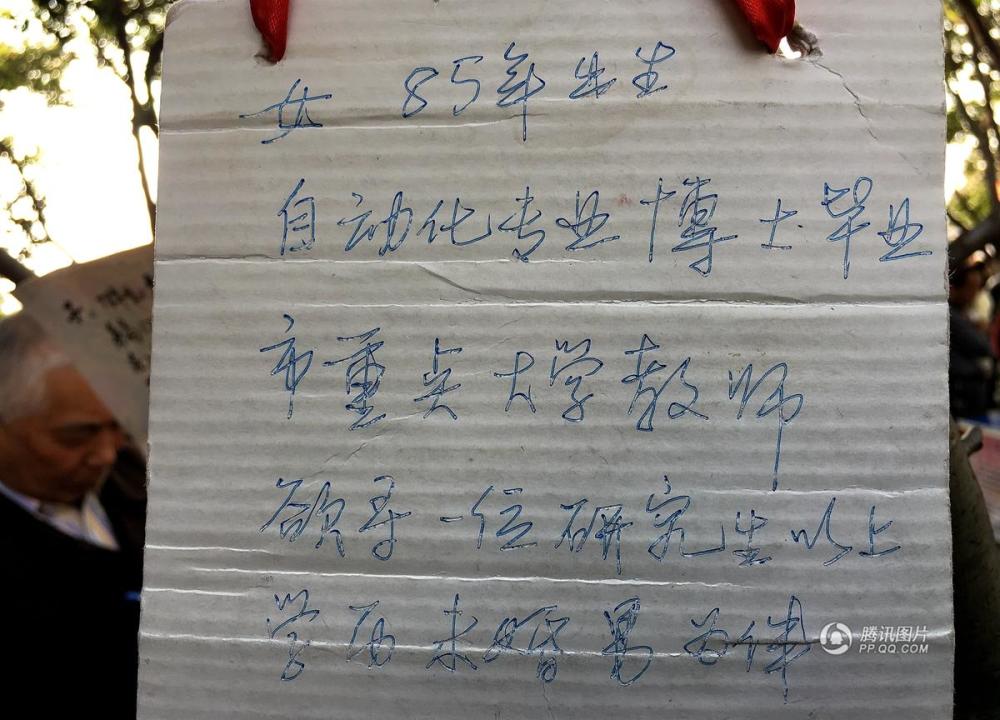 女 85年出生
自动化专业博士毕业
市重点大学教师
欲寻一位研究生以上
学历未婚男为伴
腾讯图片
PP.QQ.COM